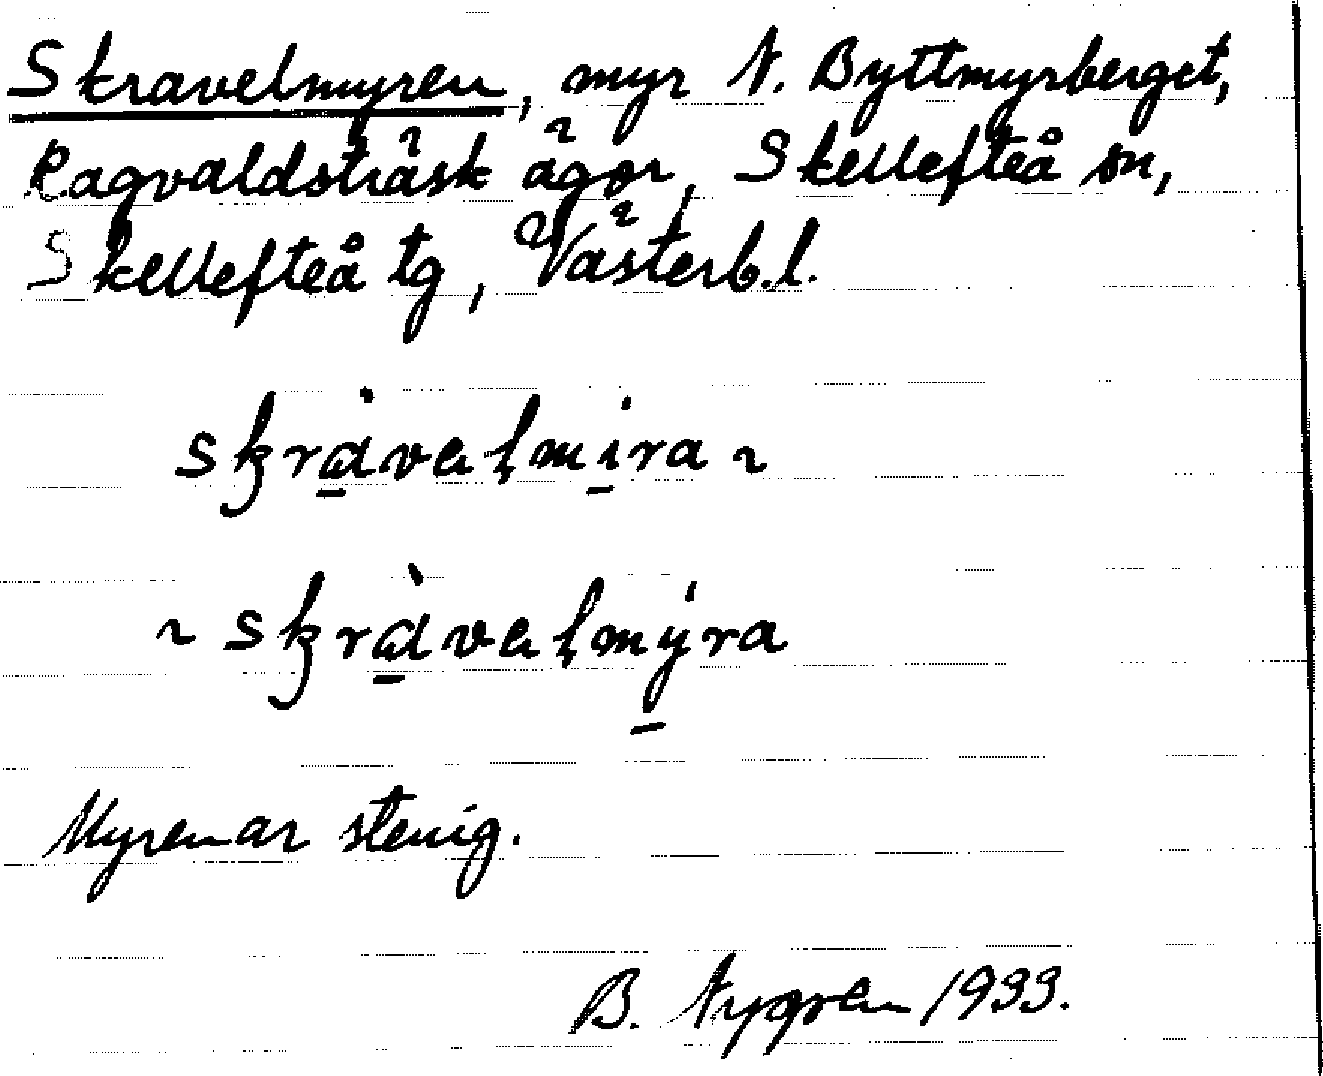 Skravelmyren, myr N. Byttmyrberget,
Ragvaldsträsk ägor, Skellefteå sn,
Skellefteå tg, Västerb.l.
skràvelmira ~
~ skràvelmyra
Myren är stenig.
B. Nygren 1933.